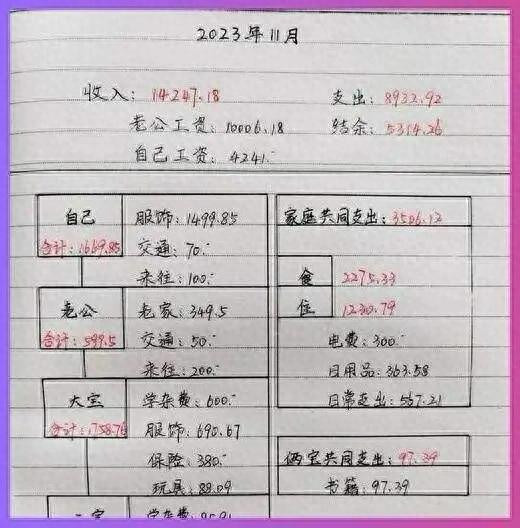 2023年11月
收入：14247.18
支出：8932.92
老公工资：10006.18
结余：5314.26
自己工资：4241.-
自己
合计：1669.85
服饰：1499.85
交通：70.-
来往：100.-
老公
合计：599.5
老家：349.5
交通：50.-
来往：200.-
大宝
合计：1758.76
学杂费：600.-
服饰：690.67
保险：380.-
玩具：88.09
学杂费：
家庭共同支出：3506.12
食 2275.33
住 1230.79
电费：300.-
日用品：363.58
日常支出：567.21
俩宝共同支出：97.39
书籍：97.39